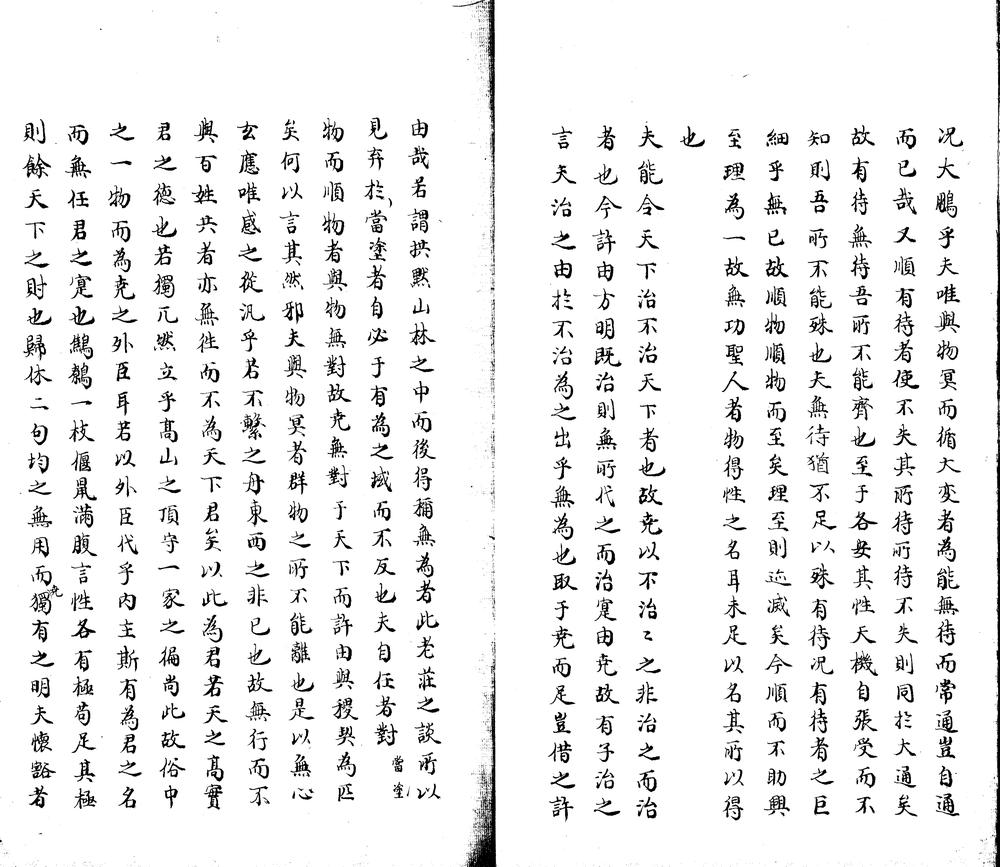 况大鵬乎夫唯與物冥而循大変者為能無待而常通豈自通
而已哉又順有待者使不失其所待所待不失則同於大通矣
故有待無待吾所不能齊也至于各安其性天機自張受而不
知則吾所不能殊也夫無待猶不足以殊有待况有待者之巨
細乎無已故順物順物而至矣理至則迹滅矣今順而不助與
至理為一故無功聖人者物得性之名耳未足以名其所以得
也
夫能令天下治不治天下者也故尭以不治々之非治之而治
者也今許由方明既治則無所代之而治寔由尭故有子治之
言夫治之由於不治為之出乎無為也取于尭而足豈借之許
由哉若謂拱黙山林之中而後得稱無為者此老荘之談所以
見弃於當塗者自必于有為之域而不反也夫自任者對
當塗
物而順物者與物無對故尭無對于天下而許由與稷契為匹
矣何以言其然邪夫與物冥者群物之所不能離也是以無心
玄應唯感之從汎乎若不繫之舟東西之非已也故無行而不
與百姓共者亦無徃而不為天下君矣以此為君若天之髙實
君之德也若獨兀然立乎髙山之頂守一家之偏尚此故俗中
之一物而為尭之外臣耳若以外臣代乎内主斯有為君之名
而無任君之寔也鷦鷯一枝偃鼠滿腹言性各有極苟足其極
則餘天下之財也歸休二句均之無用而獨有之明夫懷豁者
尭